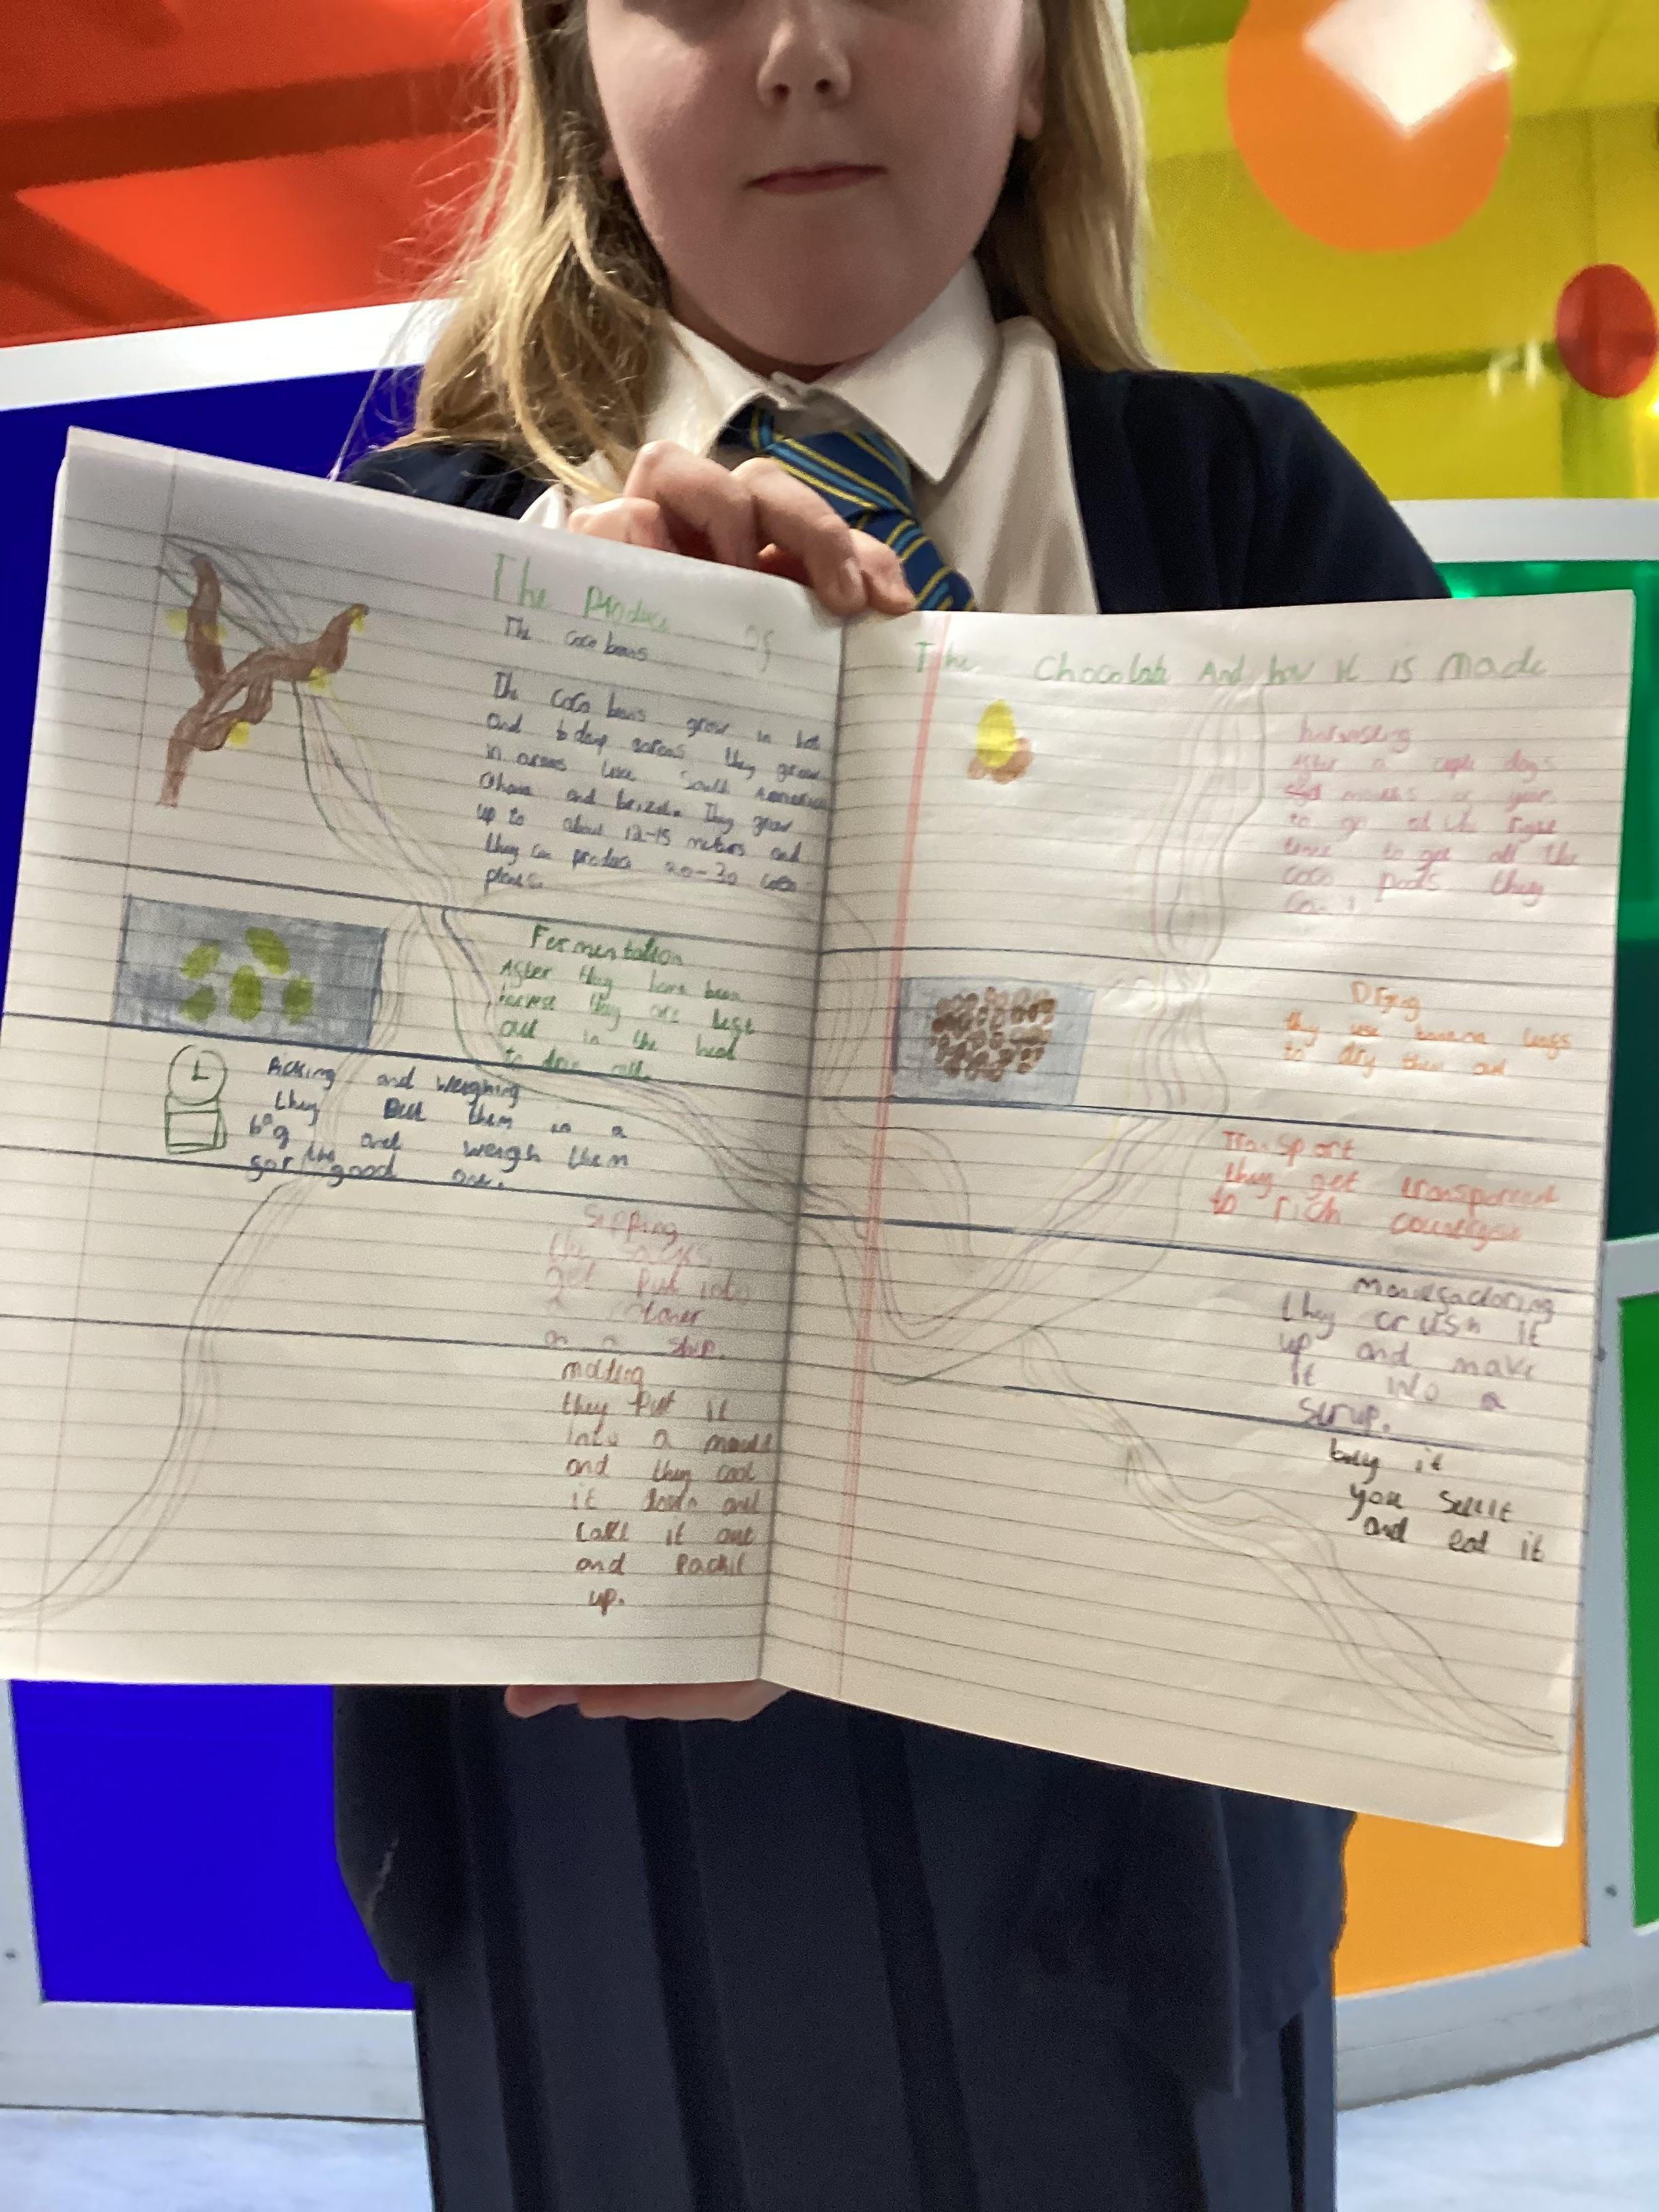 The Produce of
The coco beans
The coco beans grow in hot
and they grow
in areas like South America
Ghana and They grow
up to about 12-15 meters and
they can produce 20-30 coco
Fermentation
After they have been
harvest they are left
out in the heat
to
Picking and weighing
they put them in a
bag and weigh them
for the good one.
Sipping
get put into
a
on a ship.
molting
they Put it
into a mould
and they cool
it down and
take it out
and Packit
up.
The Chocolate And how it is made
harvising
After a days
months or years
to go at the right
time to get all the
coco pods they
can
Drying
they use banana leafs
to dry them out
Transport
they get transparent
to rich
they crush it
up and make
it into a
Sirup.
buy it
you sell it
and eat it